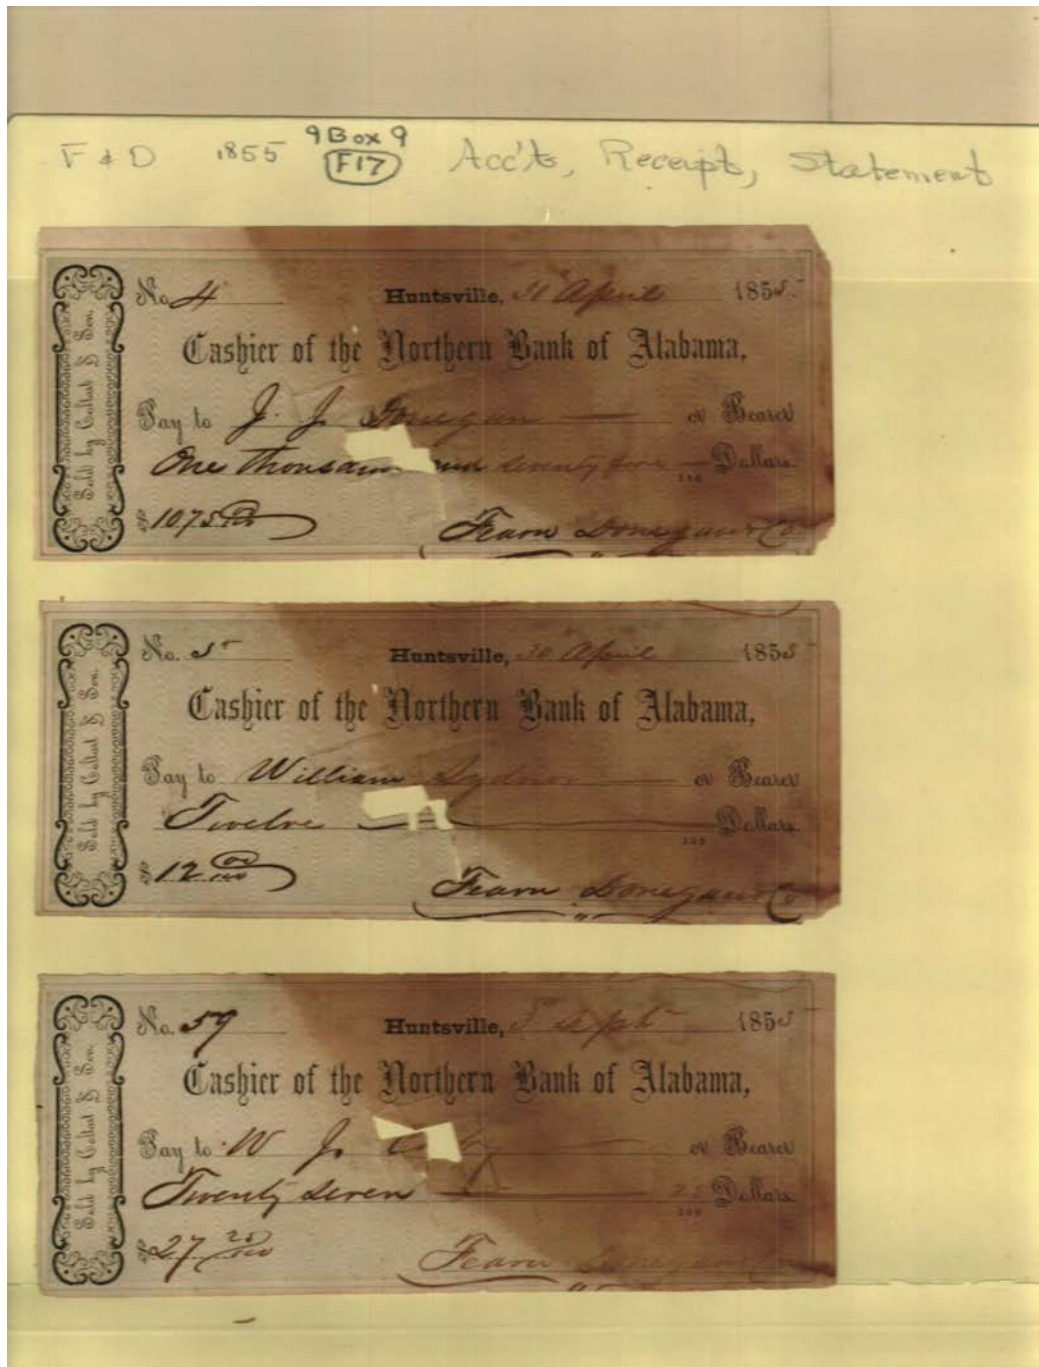 F & D 1855 9 Box 9 Acc'ts, Receipt, Statement
F17
Sold by Coltart & Son.
No. 4 Huntsville, April 1855
Cashier of the Northern Bank of Alabama,
Pay to J. J. Donegan or Bearer
One thousand and seventy five 100 Dollars.
$1075 00/100
Fearn Donegan & Co
Sold by Coltart & Son.
No. 5 Huntsville, 30 April 1855
Cashier of the Northern Bank of Alabama,
Pay to William Sydnor or Bearer
Twelve 100 Dollars.
$12 00/100
Fearn Donegan & Co
Sold by Coltart & Son.
No. 59 Huntsville, Sept 1855
Cashier of the Northern Bank of Alabama,
Pay to W J. or Bearer
Twenty seven 25/100 Dollars.
$27 25/100
Fearn Donegan & Co